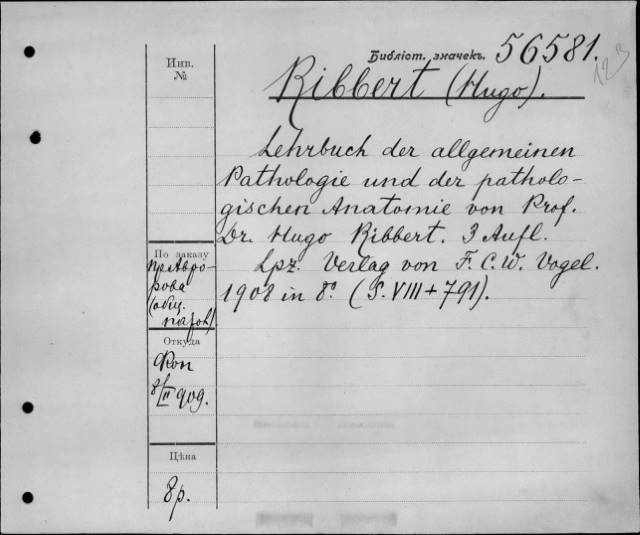 Библіот. значекъ. 56581.
123
Инв.
№
Ribbert (Hugo).
Lehrbuch der allgemeinen
Pathologie und der patholo-
gischen Anatomie von Prof.
Dr. Hugo Ribbert. 3 Aufl.
Lpz. Verlag von F. C. W. Vogel.
1908 in 8º. (S. VIII + 791).
По заказу
пр Авро-
рова
(общ.
патол.)
Откуда
8/II 909.
Цѣна
8р.